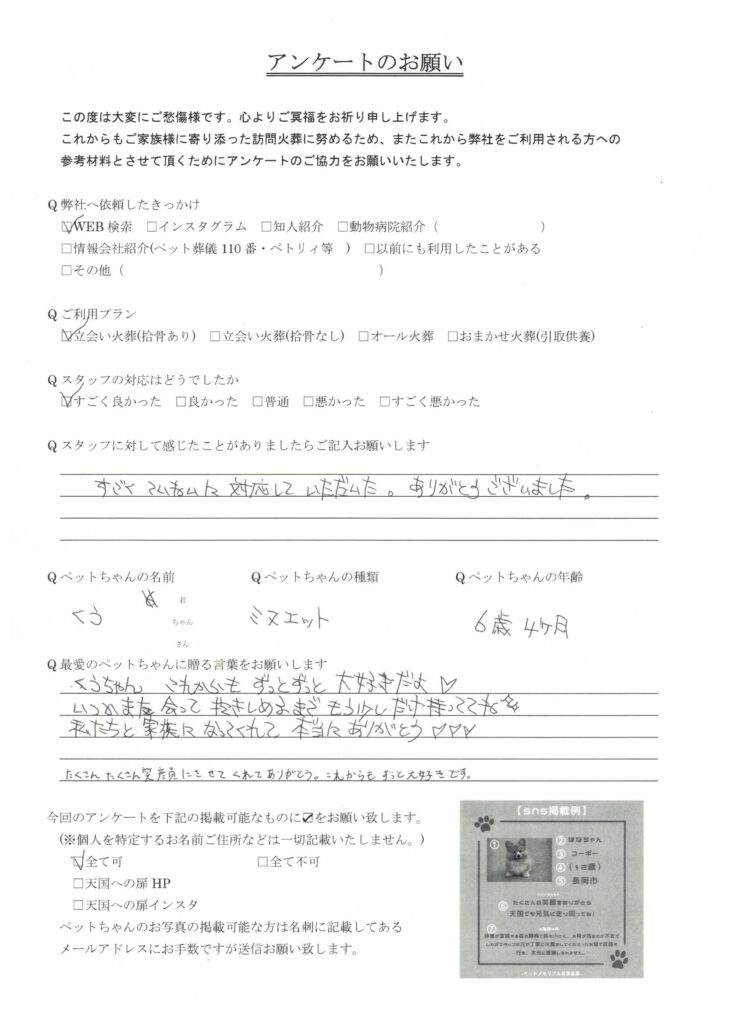 アンケートのお願い
この度は大変にご愁傷様です。心よりご冥福をお祈り申し上げます。
これからもご家族様に寄り添った訪問火葬に努めるため、またこれから弊社をご利用される方への
参考材料とさせて頂くためにアンケートのご協力をお願いいたします。
Q 弊社へ依頼したきっかけ
☑WEB 検索 □インスタグラム □知人紹介 □動物病院紹介（ ）
□情報会社紹介(ペット葬儀 110 番・ペトリィ等 ) □以前にも利用したことがある
□その他（ ）
Q ご利用プラン
☑立会い火葬(拾骨あり) □立会い火葬(拾骨なし) □オール火葬 □おまかせ火葬(引取供養)
Q スタッフの対応はどうでしたか
☑すごく良かった □良かった □普通 □悪かった □すごく悪かった
Q スタッフに対して感じたことがありましたらご記入お願いします
すごく ていねいに 対応して いただいた。ありがとう ございました。
Q ペットちゃんの名前 Q ペットちゃんの種類 Q ペットちゃんの年齢
くう 君 ちゃん さん ミヌエット 6歳 4ヶ月
Q 最愛のペットちゃんに贈る言葉をお願いします
くうちゃん これからも ずっとずっと 大好きだよ ♡
いつかまた 会って 抱きしめるまで もう少しだけ 待っててね
私たちと 家族に なってくれて 本当に ありがとう ♡♡♡
たくさん たくさん 笑顔に させて くれて ありがとう。これからも ずっと 大好き です。
今回のアンケートを下記の掲載可能なものに☑をお願い致します。
(※個人を特定するお名前ご住所などは一切記載いたしません。)
☑全て可 □全て不可
□天国への扉 HP
□天国への扉インスタ
ペットちゃんのお写真の掲載可能な方は名刺に記載してある
メールアドレスにお手数ですが送信お願い致します。
【sns掲載例】
①
② はなちゃん
③ コーギー
④ (12歳)
⑤ 長岡市
⑥ たくさんの笑顔をありがとう
天国でも元気に走り回ってね!
⑦